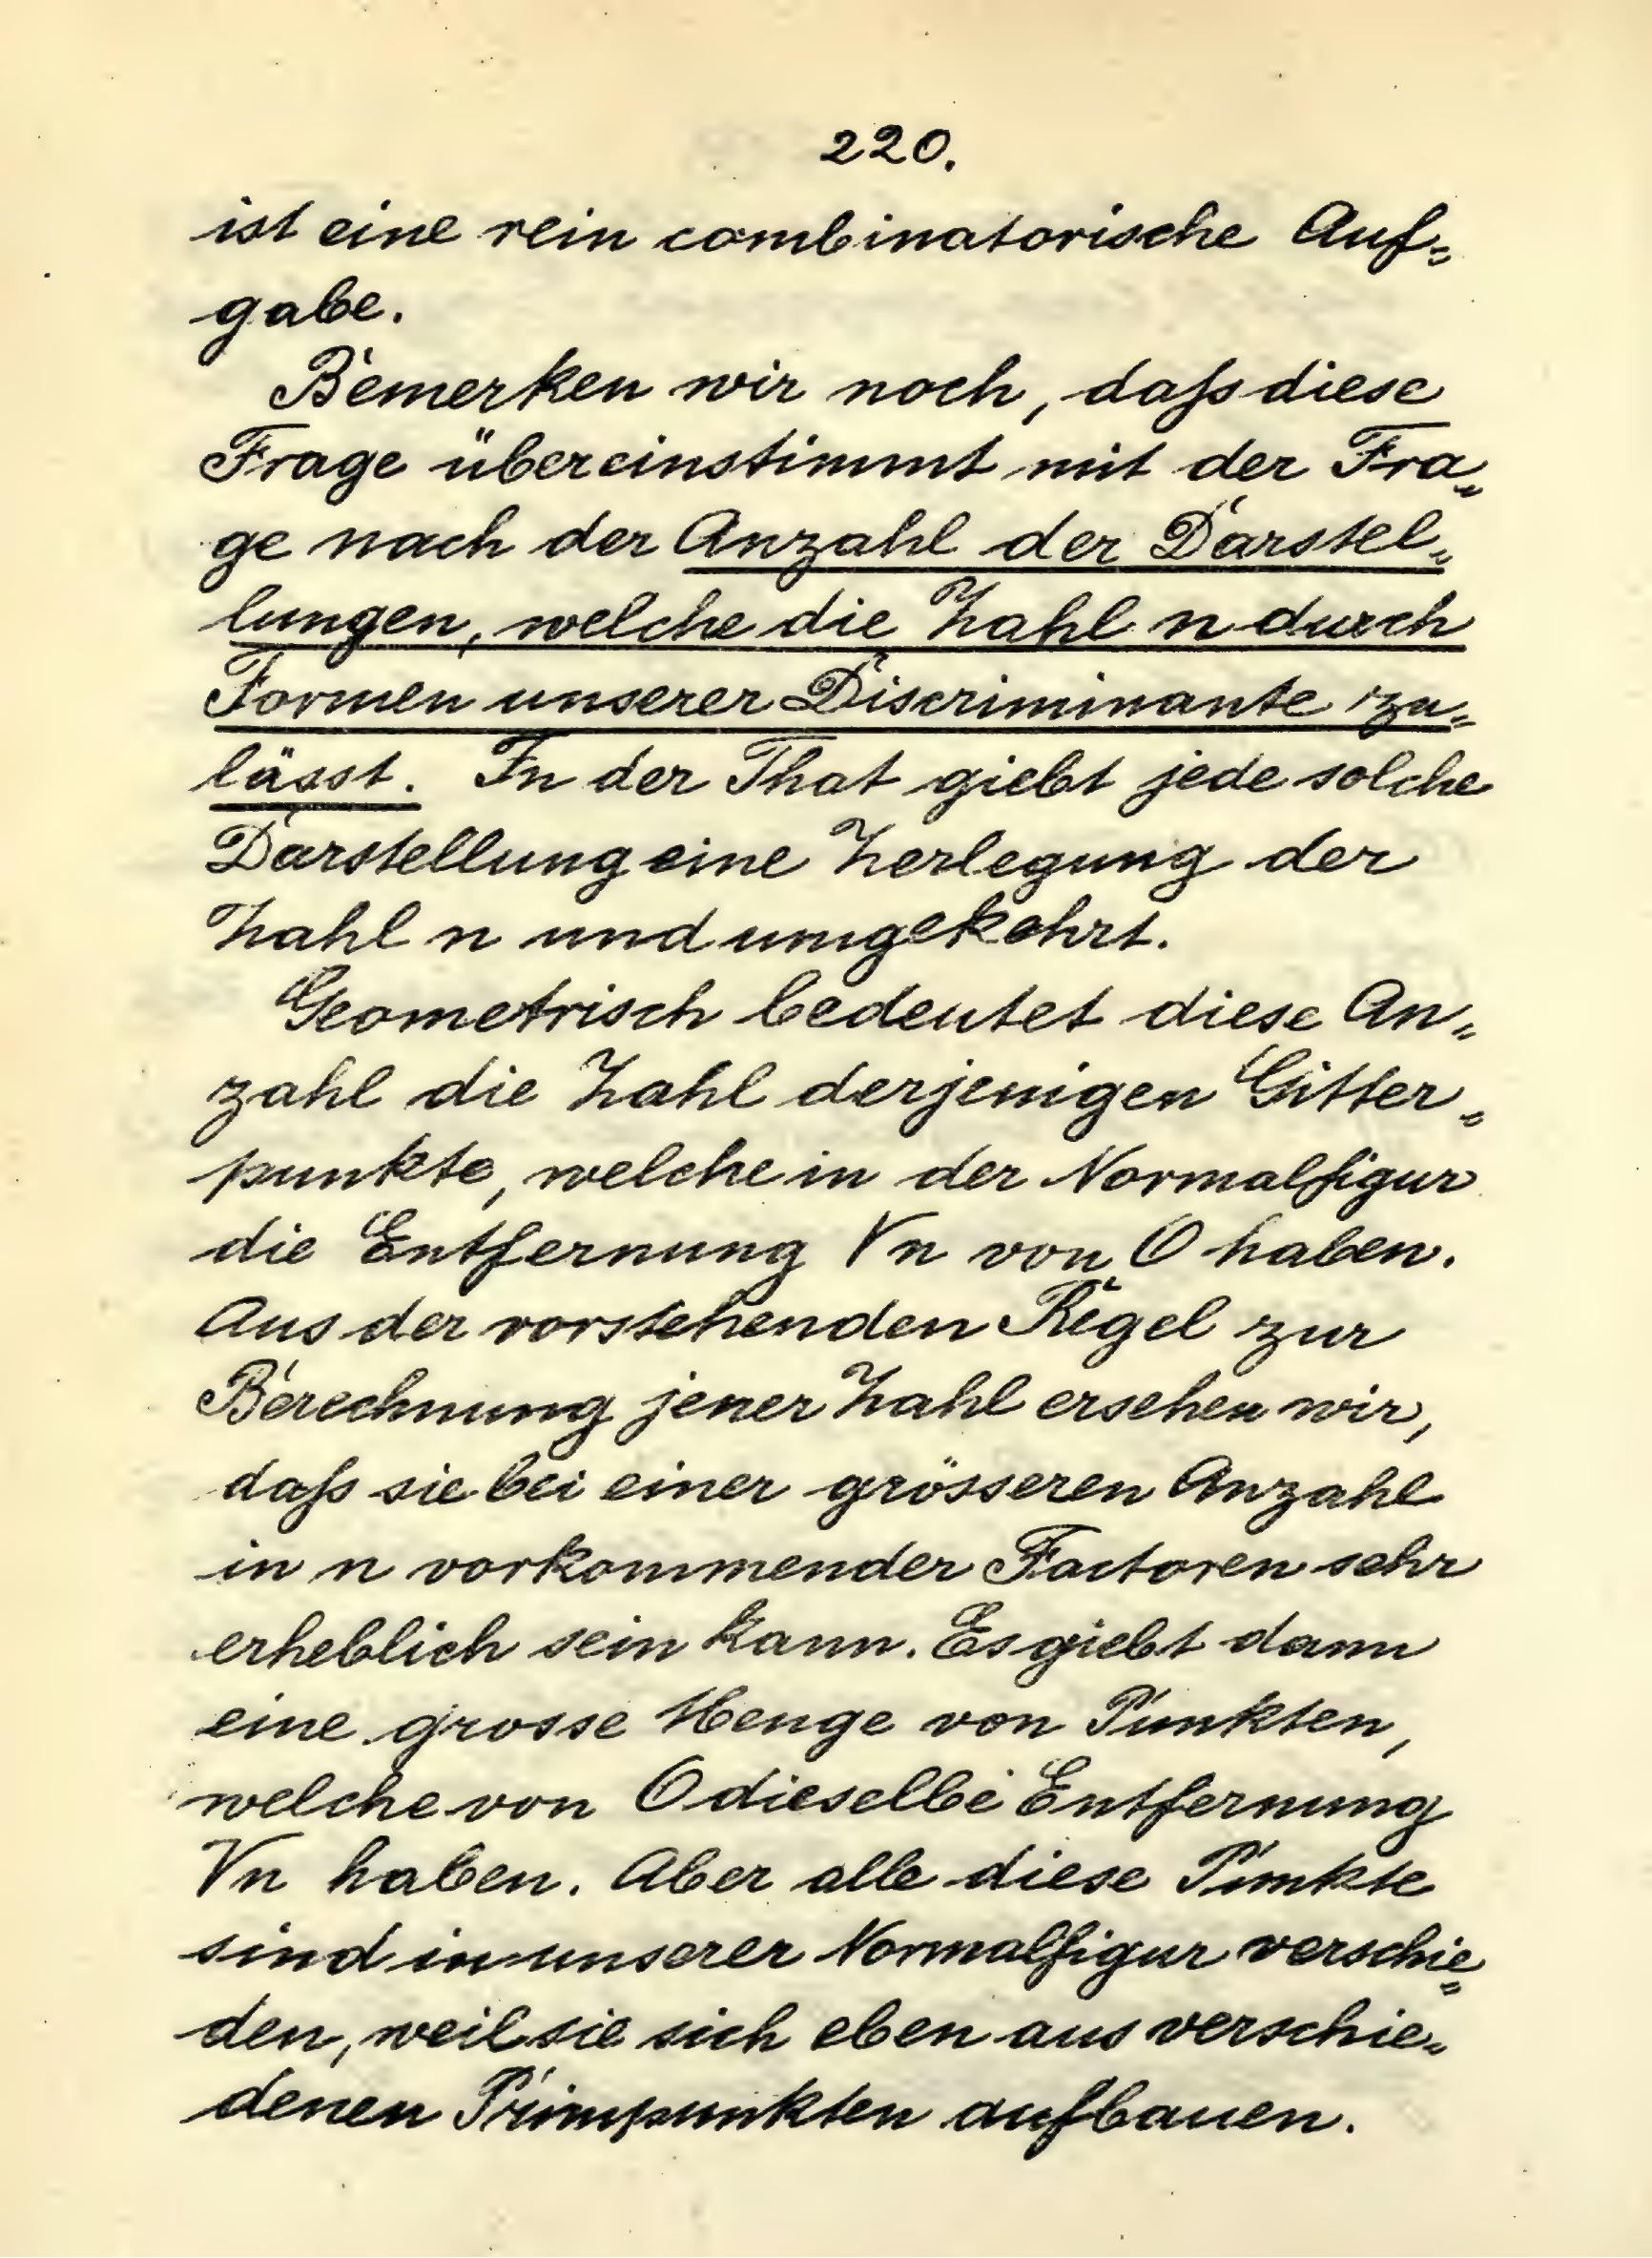 220.
ist eine rein combinatorische Auf=
gabe.
Bemerken wir noch, daß diese
Frage übereinstimmt mit der Fra=
ge nach der Anzahl der Darstel=
lungen, welche die Zahl n durch
Formen unserer Discriminante zu=
lässt. In der That giebt jede solche
Darstellung eine Zerlegung der
Zahl n und umgekehrt.
Geometrisch bedeutet diese An=
zahl die Zahl derjenigen Gitter=
punkte, welche in der Normalfigur
die Entfernung √n von O haben.
Aus der vorstehenden Regel zur
Berechnung jener Zahl ersehen wir,
daß sie bei einer grösseren Anzahl
in n vorkommender Factoren sehr
erheblich sein kann. Es giebt dann
eine grosse Menge von Punkten,
welche von O dieselbe Entfernung
√n haben. Aber alle diese Punkte
sind in unserer Normalfigur verschie=
den, weil sie sich eben aus verschie=
denen Primpunkten aufbauen.